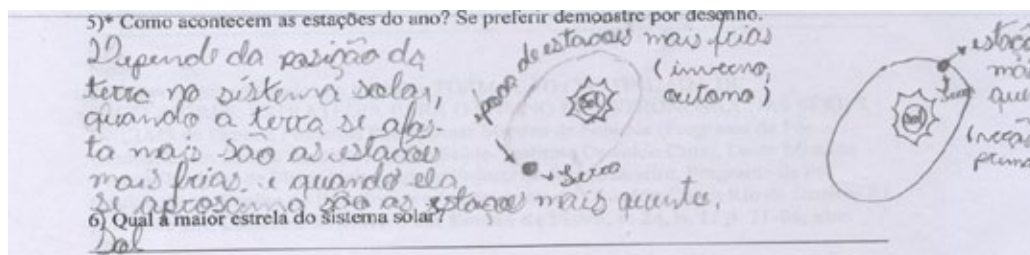 5)* Como acontecem as estações do ano? Se preferir demonstre por desenho.
Depende da posição da
terra no sistema solar,
quando a terra se afas-
ta mais são as estaçoes
mais frias. e quando ela
se aproscima são as estaçoes mais quentes,
época de estaçoes mais frias
(inverno,
outono)
Sol
terra
estaçõ
mai
que
Terra
Sol
(verão
prima
6) Qual a maior estrela do sistema solar?
Sol